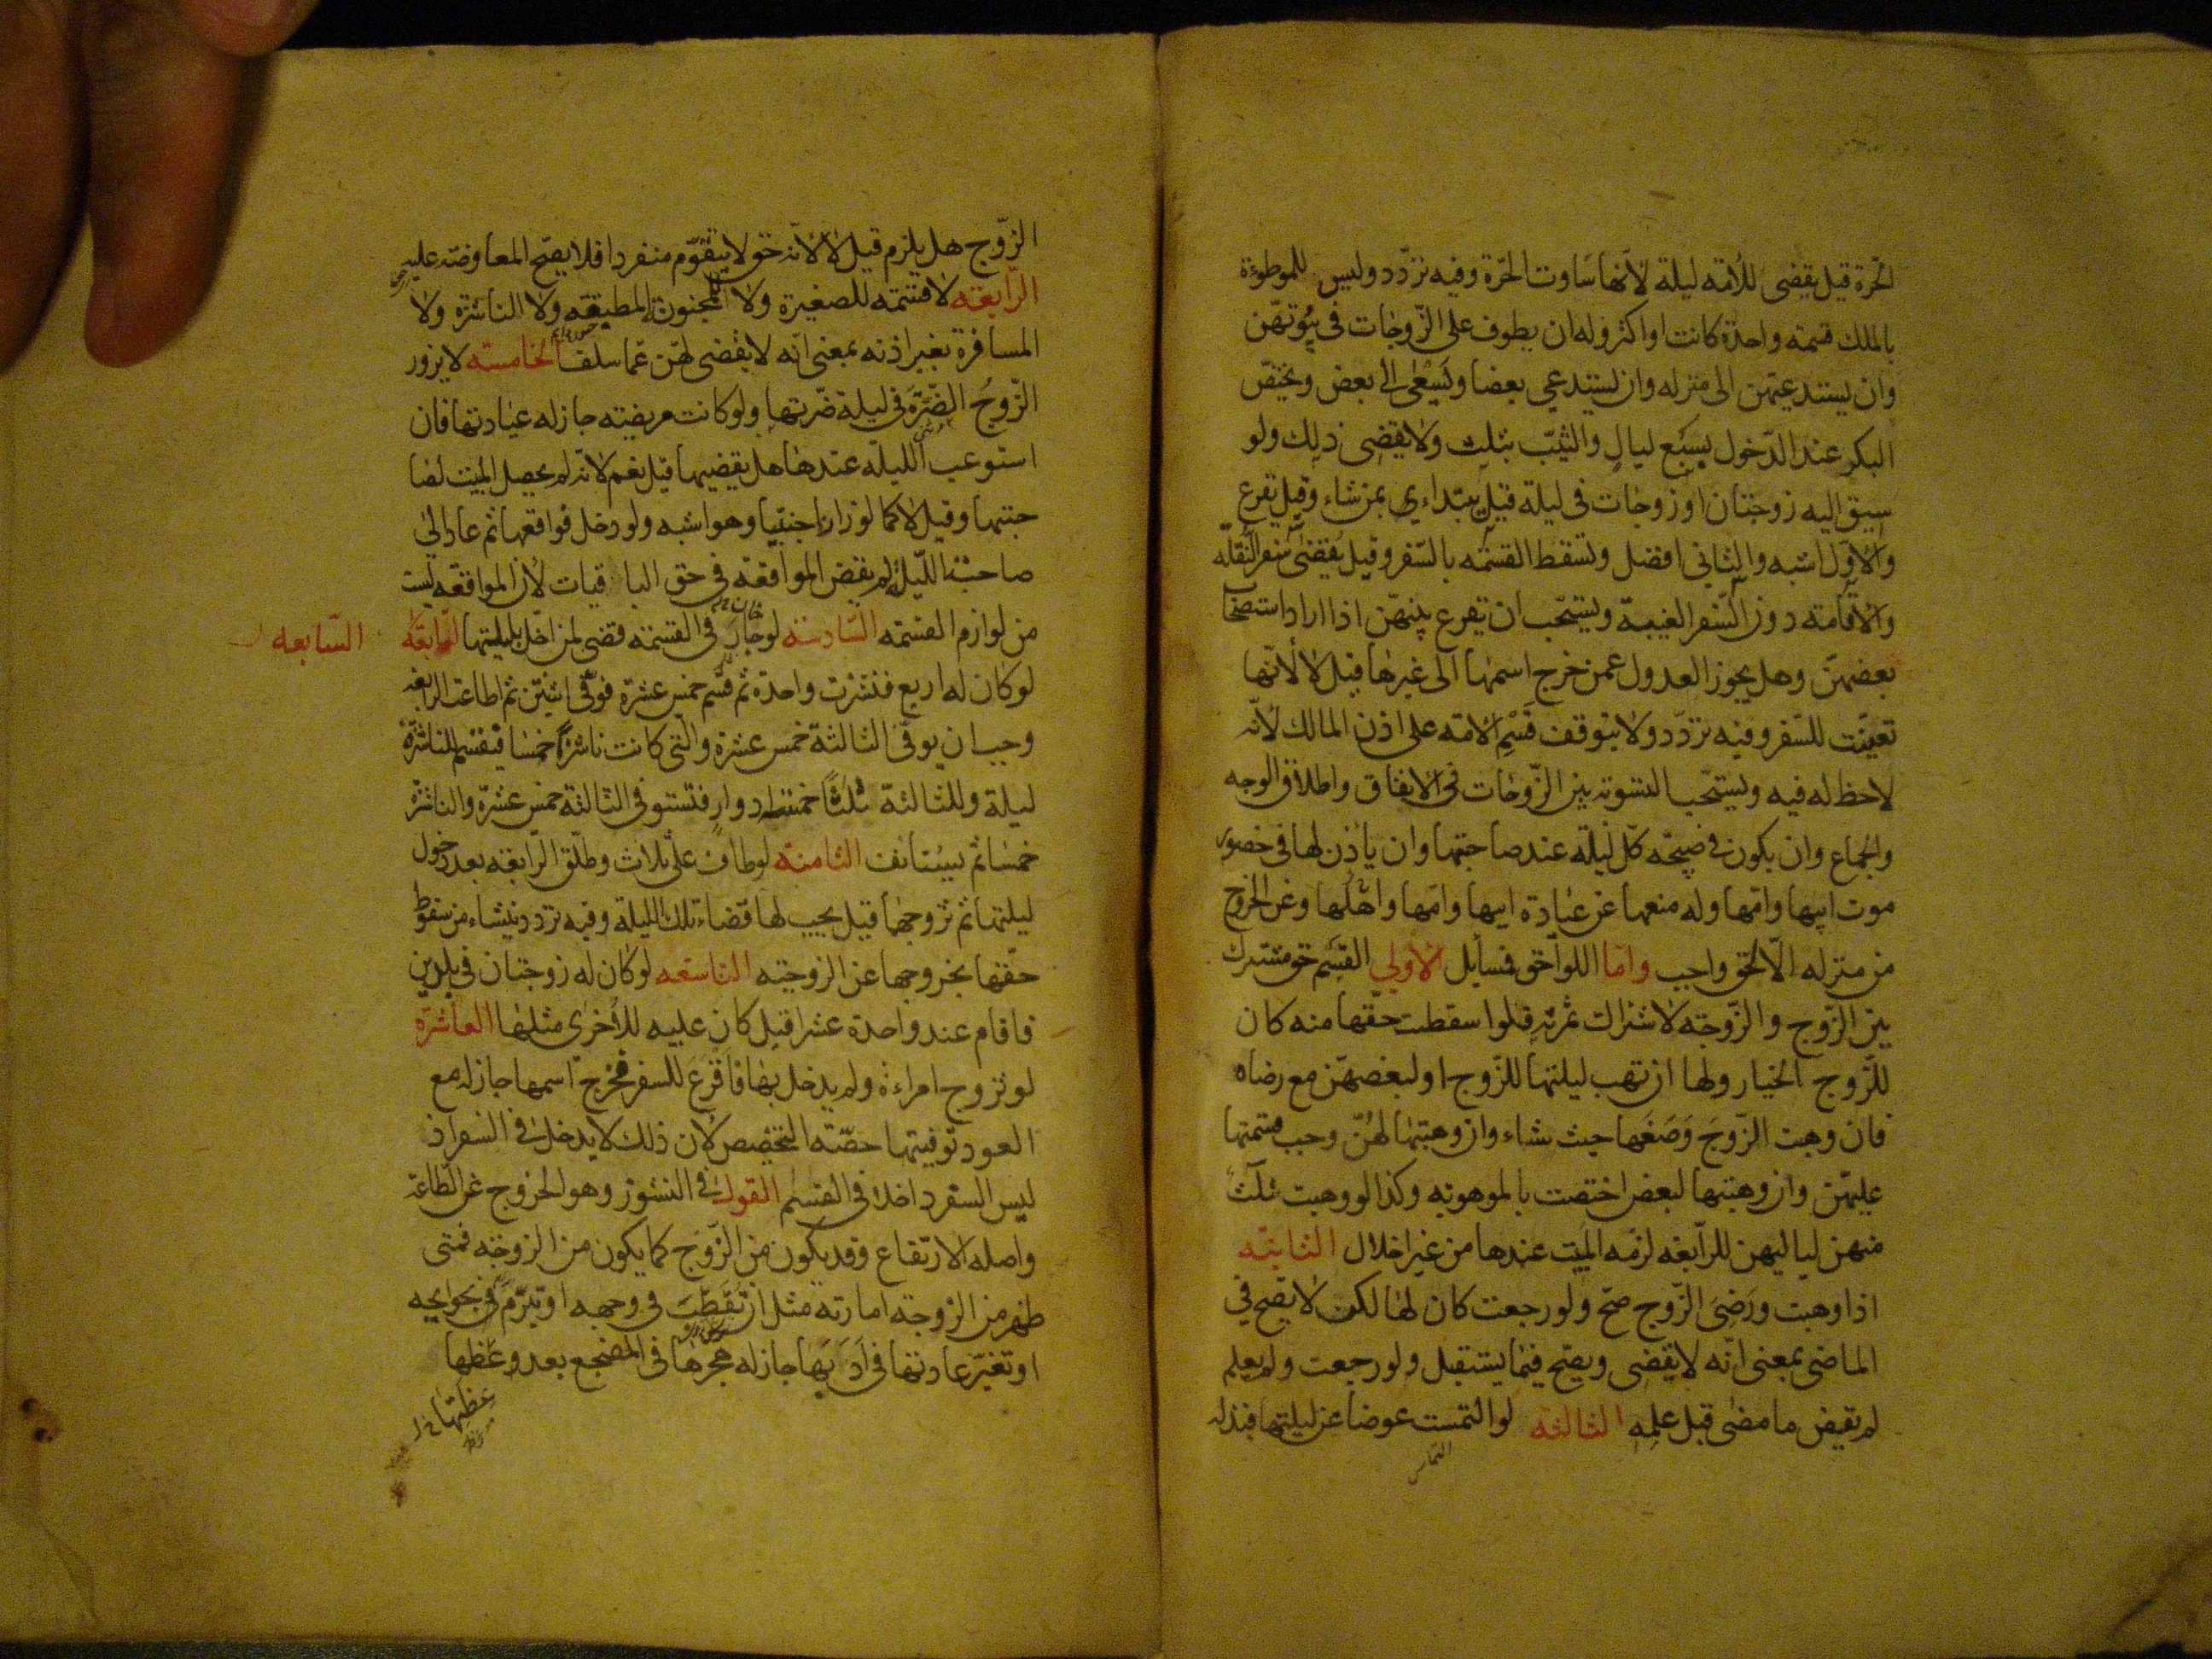 الحرة قيل يقضى للأمة ليلة لأنها ساوت الحرة وفيه تردد وليس للموطوءة
بالملك قسمة واحدة كانت او اكثر وله ان يطوف على الزوجات في بيوتهن
وان يستدعيهن الى منزله وان يستدعي بعضا ويسعى الى بعض ويختص
البكر عند الدخول بسبع ليال والثيب بثلث ولا يقضى ذلك ولو
سيق اليه زوجتان او زوجات في ليلة قيل يبتداءى بمن شاء وقيل يقرع
والاول اشبه والثاني افضل وتسقط القسمة بالسفر وقيل يقضى سفر النقلة
والاقامة دون السفر الغيبة ويستحب ان يقرع بينهن اذا اراد استصحاب
بعضهن وهل يجوز العدول عمن خرج اسمها الى غيرها قيل لا لانها
تعينت للسفر وفيه تردد ولا يتوقف قسم الامة على اذن المالك لانه
لاحظ له فيه ويستحب التسوية بين الزوجات في الانفاق واطلاق الوجه
والجماع وان يكون في صبيحة كل ليلة عند صاحبتها وان يأذن لها في حضور
موت ابيها وامها وله منعها عن عيادة ابيها وامها واهلها وعن الخروج
من منزله الا لحق واجب واما اللواحق فسايل الاولى القسم حق مشترك
بين الزوج والزوجة لاشتراك ثمرته فلوا سقطت حقها منه كان
للزوج الخيار ولها ان تهب ليلتها للزوج او لبعضهن مع رضاه
فان وهبت الزوج وضعها حيث شاء وان وهبتها لهن وجب قسمتها
عليهن وان وهبتها لبعض اختصت بالموهوبة وكذا لو وهبت ثلث
منهن لياليهن للرابعة لزمه المبيت عندها من غير اخلال الثانية
اذا وهبت ورضى الزوج صح ولو رجعت كان لها لكن لا يصح في
الماضى بمعنى انه لا يقضى ويصح فيما يستقبل ولو رجعت ولم يعلم
لم يقض ما مضى قبل علمه الثالثة لو التمست عوضا عن ليلتها فبذله
التماس
الزوج هل يلزم قيل لا لانه حق لا يتقوم منفردا فلا يصح المعاوضة عليه
الرابعة لا قسمة للصغيرة ولا المجنونة المطبقة ولا الناشزة ولا
المسافرة بغير اذنه بمعنى انه لا يقضى لهن عما سلف الخامسة لا يزور
الزوج الضرة في ليلة ضرتها ولو كانت مريضة جاز له عيادتها فان
استوعب الليلة عندها هل يقضيها قيل نعم لانه لم يحصل المبيت لصا
حبتها وقيل لا كما لو زار اجنبيا وهو اشبه ولو دخل فواقعها ثم عاد الى
صاحبة الليلة لم يقض المواقعة في حق الباقيات لان المواقعة ليست
من لوازم القسمة السادسة لو جار في القسمة قضى لمن اخل بليلتها السابعة
السابعه
لو كان له اربع فنشزت واحدة ثم قسم خمس عشرة فوفى اثنتين ثم اطاعت الرابعة
وجب ان يوفى الثالثة خمس عشرة والتى كانت ناشزا خمسا فيقسم للناشزة
ليلة وللثالثة ثلثا خمسة ادوار فتستوفى الثالثة خمس عشرة والناشزة
خمسا ثم يستانف الثامنة لو طاف على ثلاث وطلق الرابعة بعد دخول
ليلتها ثم تزوجها قيل يجب لها قضاء تلك الليلة وفيه تردد ينشاء من سقوط
حقها بخروجها عن الزوجية التاسعة لو كان له زوجتان في بلدين
فاقام عند واحدة عشرا قيل كان عليه للاخرى مثلها العاشرة
لو تزوج امراءة ولم يدخل بها فاقرع للسفر فخرج اسمها جاز له مع
العود توفيتها حصة التخصيص لان ذلك لا يدخل في السفر اذ
ليس السفر داخلا في القسم القول في النشوز وهو الخروج عن الطاعة
واصله الارتفاع وقد يكون من الزوج كما يكون من الزوجة فمتى
ظهر من الزوجة امارته مثل ان تقطب في وجهه او تتبرم في بحوايجه
او تغير عادتها في ادابها جاز له هجرها في المضجع بعد وعظها
عظتها